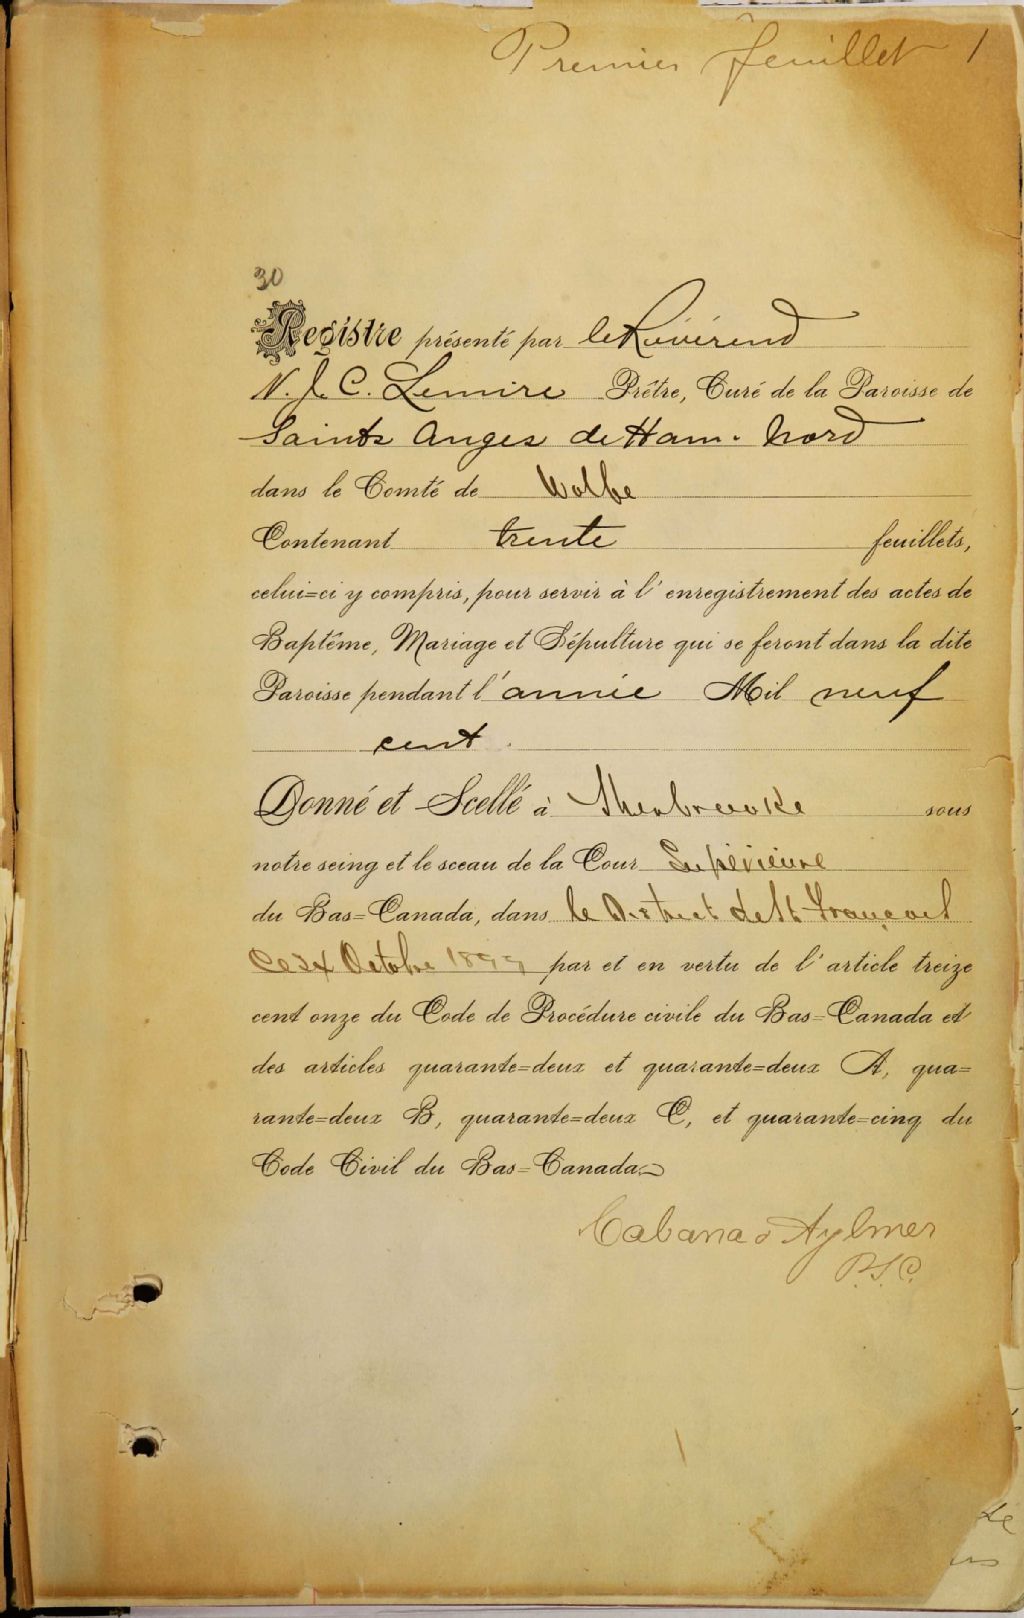 Premier feuillet 1
30
Registre présenté par le Révérend
N. J. C. Lemire Prêtre, Curé de la Paroisse de
Saints Anges de Ham-Nord
dans le Comté de Wolfe
Contenant trente feuillets,
celui=ci y compris, pour servir à l'enregistrement des actes de
Baptême, Mariage et Sépulture qui se feront dans la dite
Paroisse pendant l'année Mil neuf
cent.
Donné et Scellé à Sherbrooke sous
notre seing et le sceau de la Cour Supérieure
du Bas=Canada, dans le District de St François
Ce 24 Octobre 1899 par et en vertu de l'article treize
cent onze du Code de Procédure civile du Bas=Canada et
des articles quarante=deux et quarante=deux A, qua=
rante=deux B, quarante=deux C, et quarante=cinq du
Code Civil du Bas=Canada
Cabana & Aylmer
P.S.C.